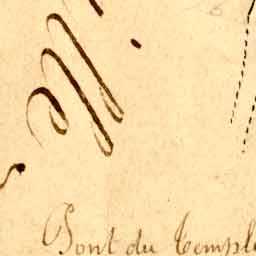 Pont du temple